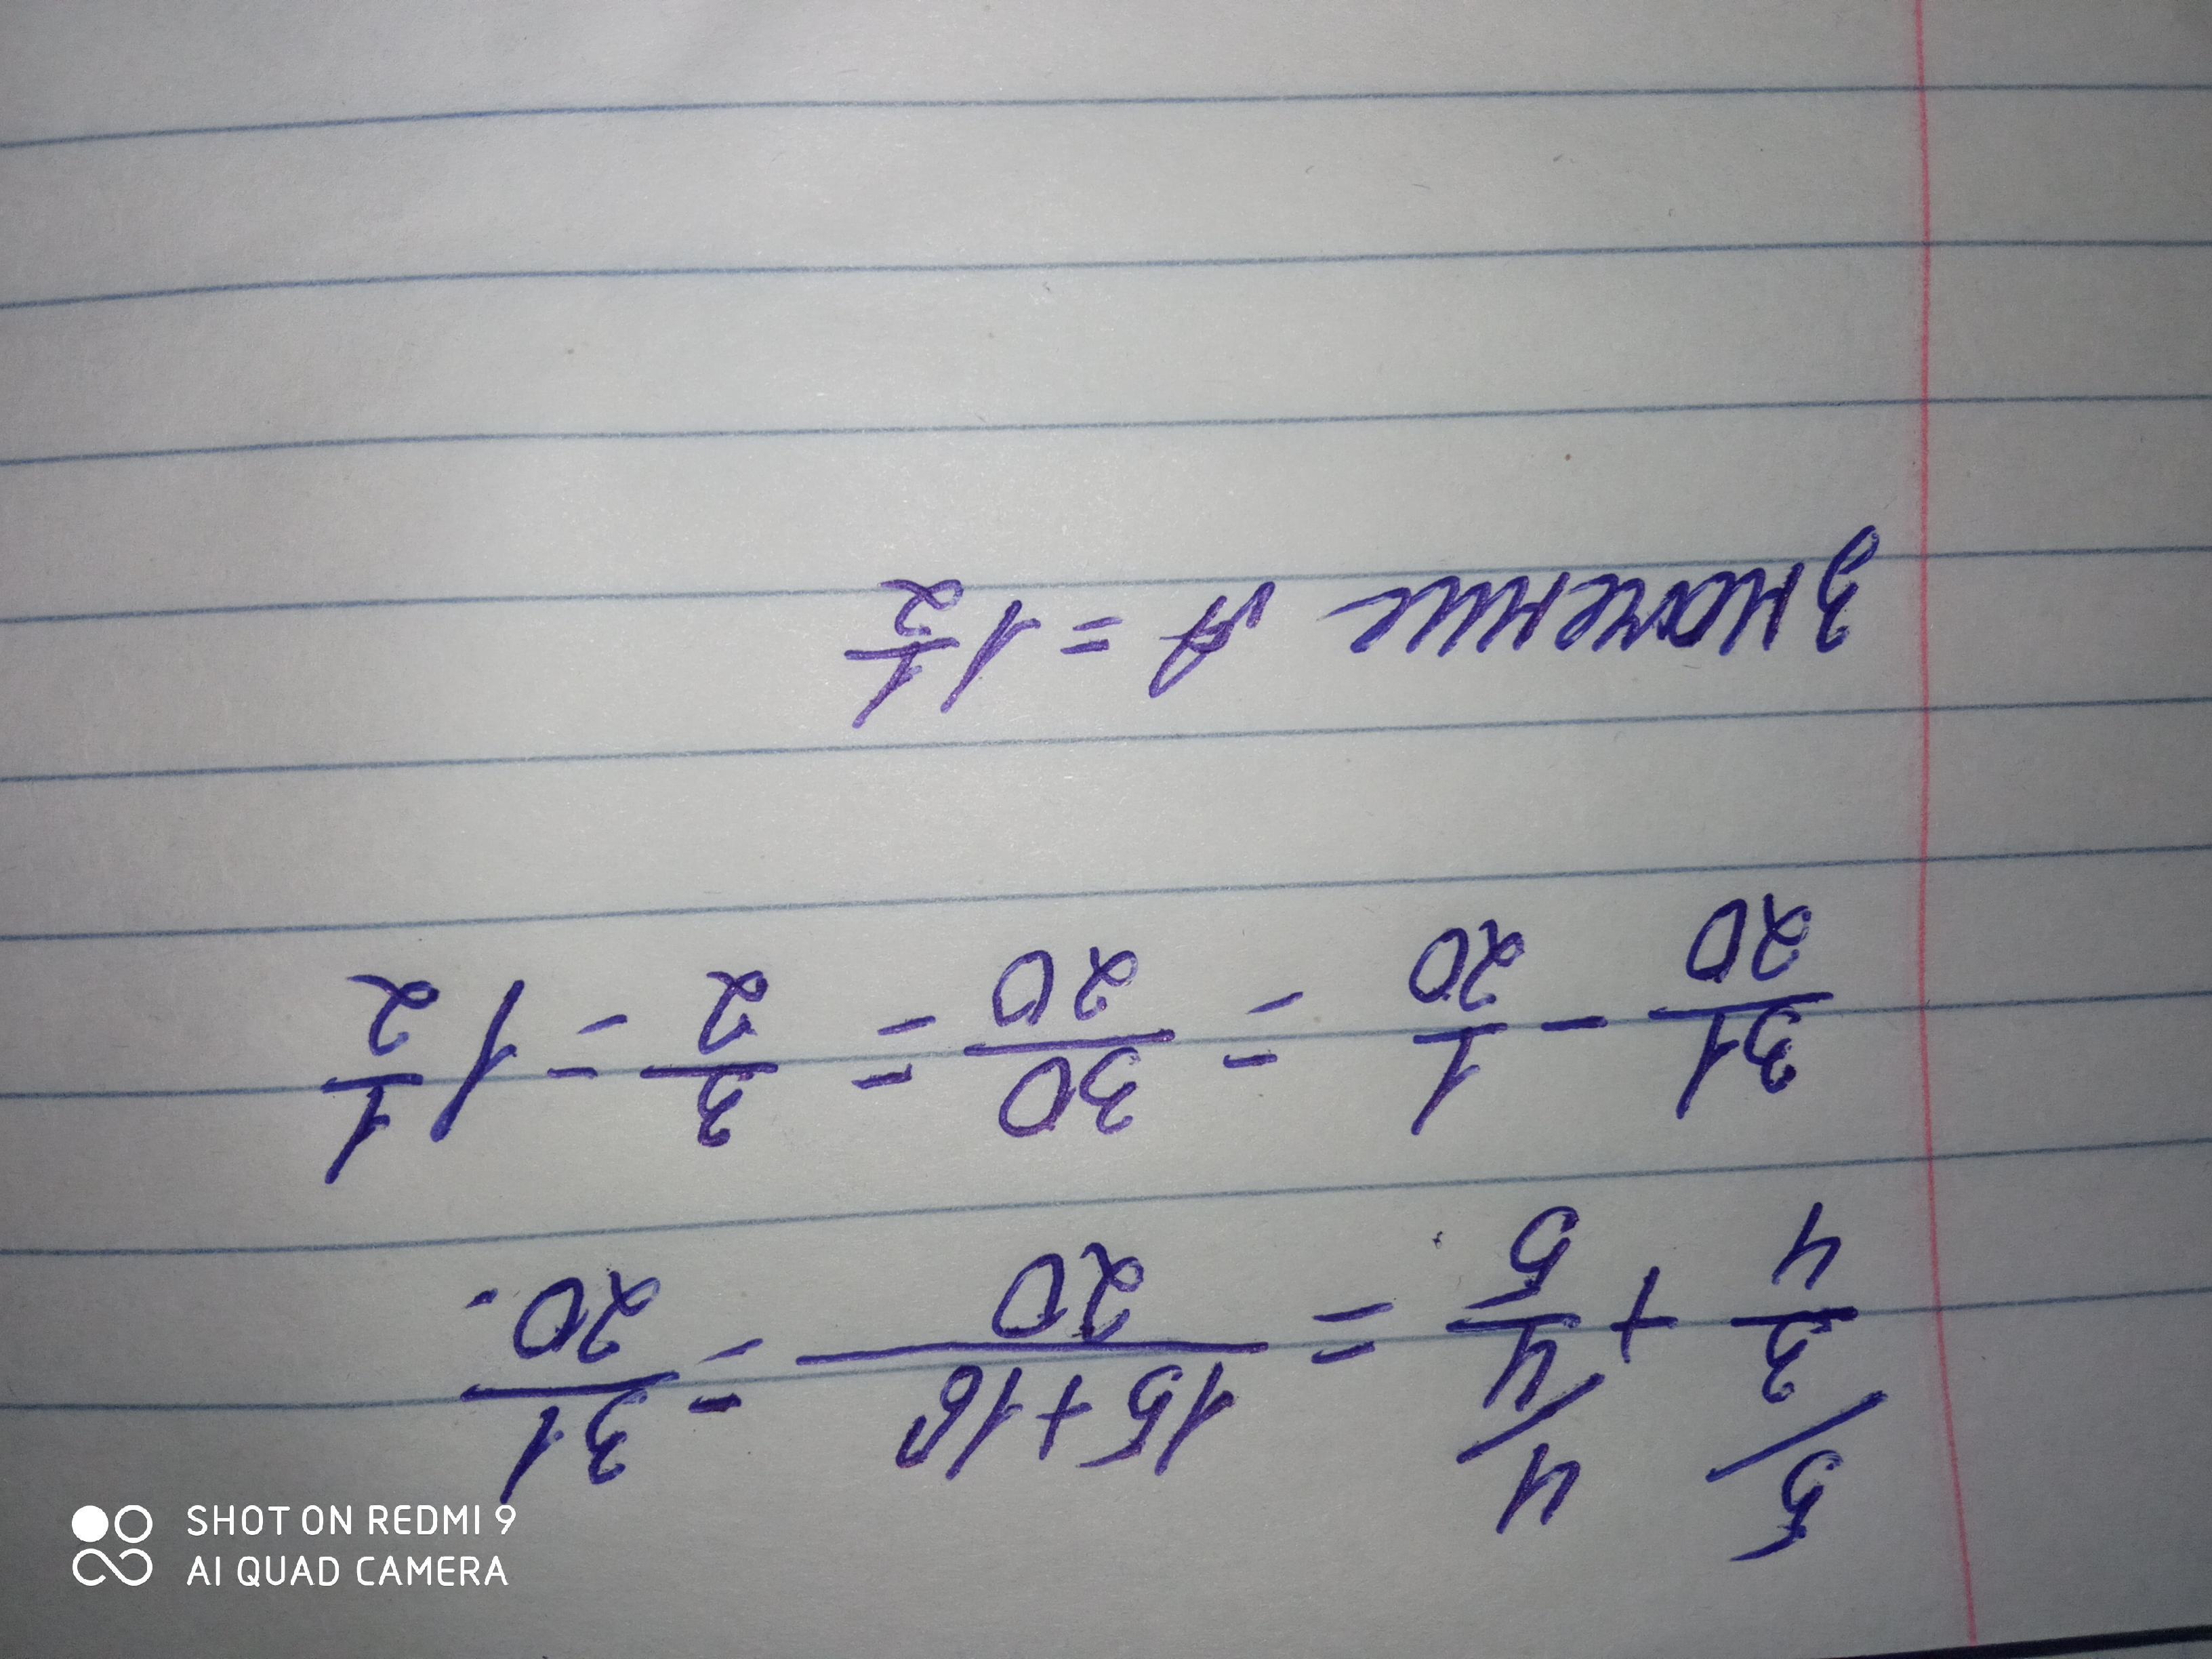 5/ 3/4 + 4/ 4/5 = 15+16/20 = 31/20.
31/20 - 1/20 = 30/20 = 3/2 = 1 1/2
Значение A = 1 1/2
SHOT ON REDMI 9
AI QUAD CAMERA